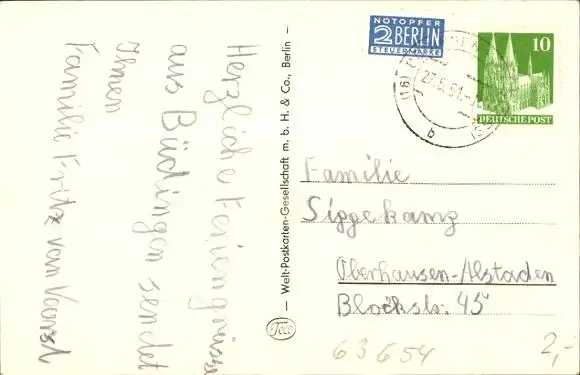 Herzliche Feriengrüsse
aus Büdingen sendet
Ihnen
Familie Fritz vom
– Welt-Postkarten-Gesellschaft m. b. H. & Co., Berlin –
NOTOPFER
2 BERLIN
STEUERMARKE
10
DEUTSCHE POST
(16)
27.6.51.
b
Familie
Siggekamp
Oberhausen-Alstaden
Blockstr. 45
63654
2,-